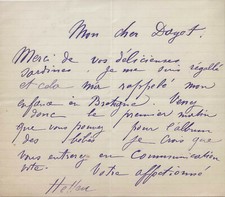 Mon cher Dayot.
Merci de vos délicieuses
sardines. Je me suis régallé
et cela m'a rappelé mon
enfance en Bretagne. Venez
donc le premier matin
que vous pouvez pour l'album
des bébés je crois que
vous entrerez en communication
vite. Votre affectionné
Helleu